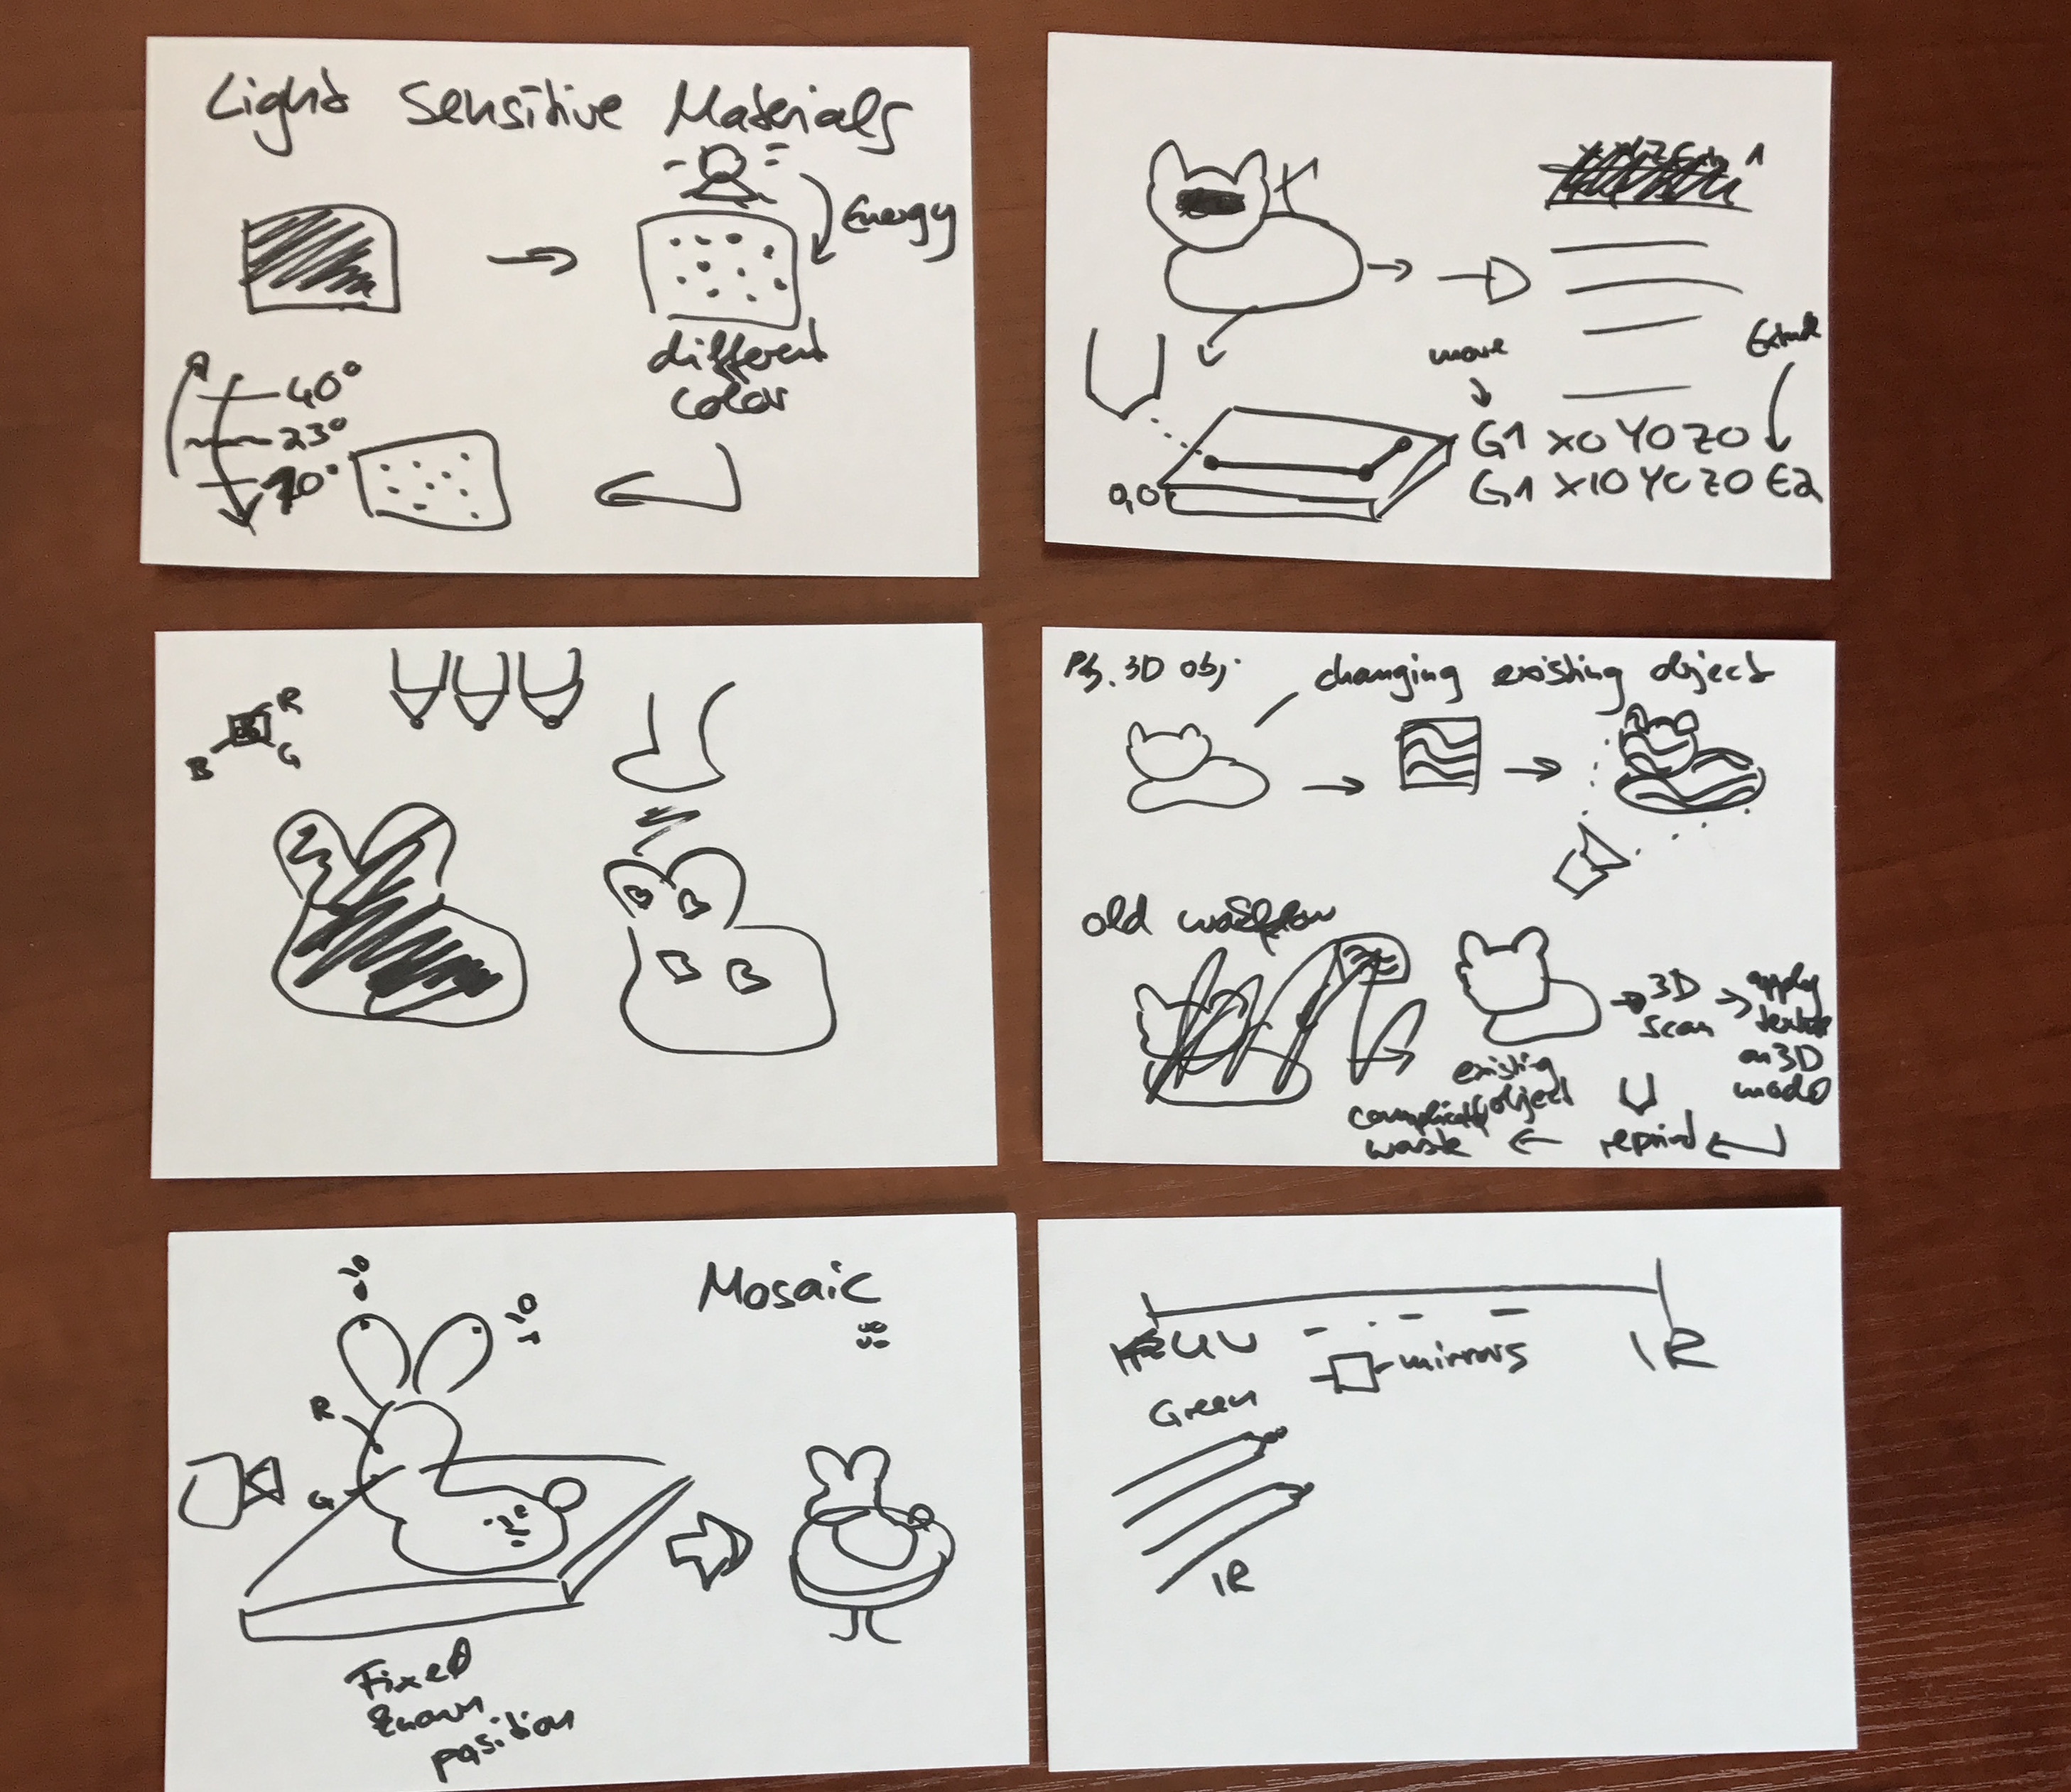 Light Sensitive Materials
Energy
different
color
40°
23°
10°
move
Extrude
G1 X0 Y0 Z0
G1 X10 Y0 Z0 E2
0,0
R
G
B
3D obj.
changing existing object
old workflow
existing
object
3D
scan
apply
texture
on 3D
model
reprint
complicated
waste
Mosaic
R
G
Fixed
known
position
UV
mirrors
IR
Green
IR